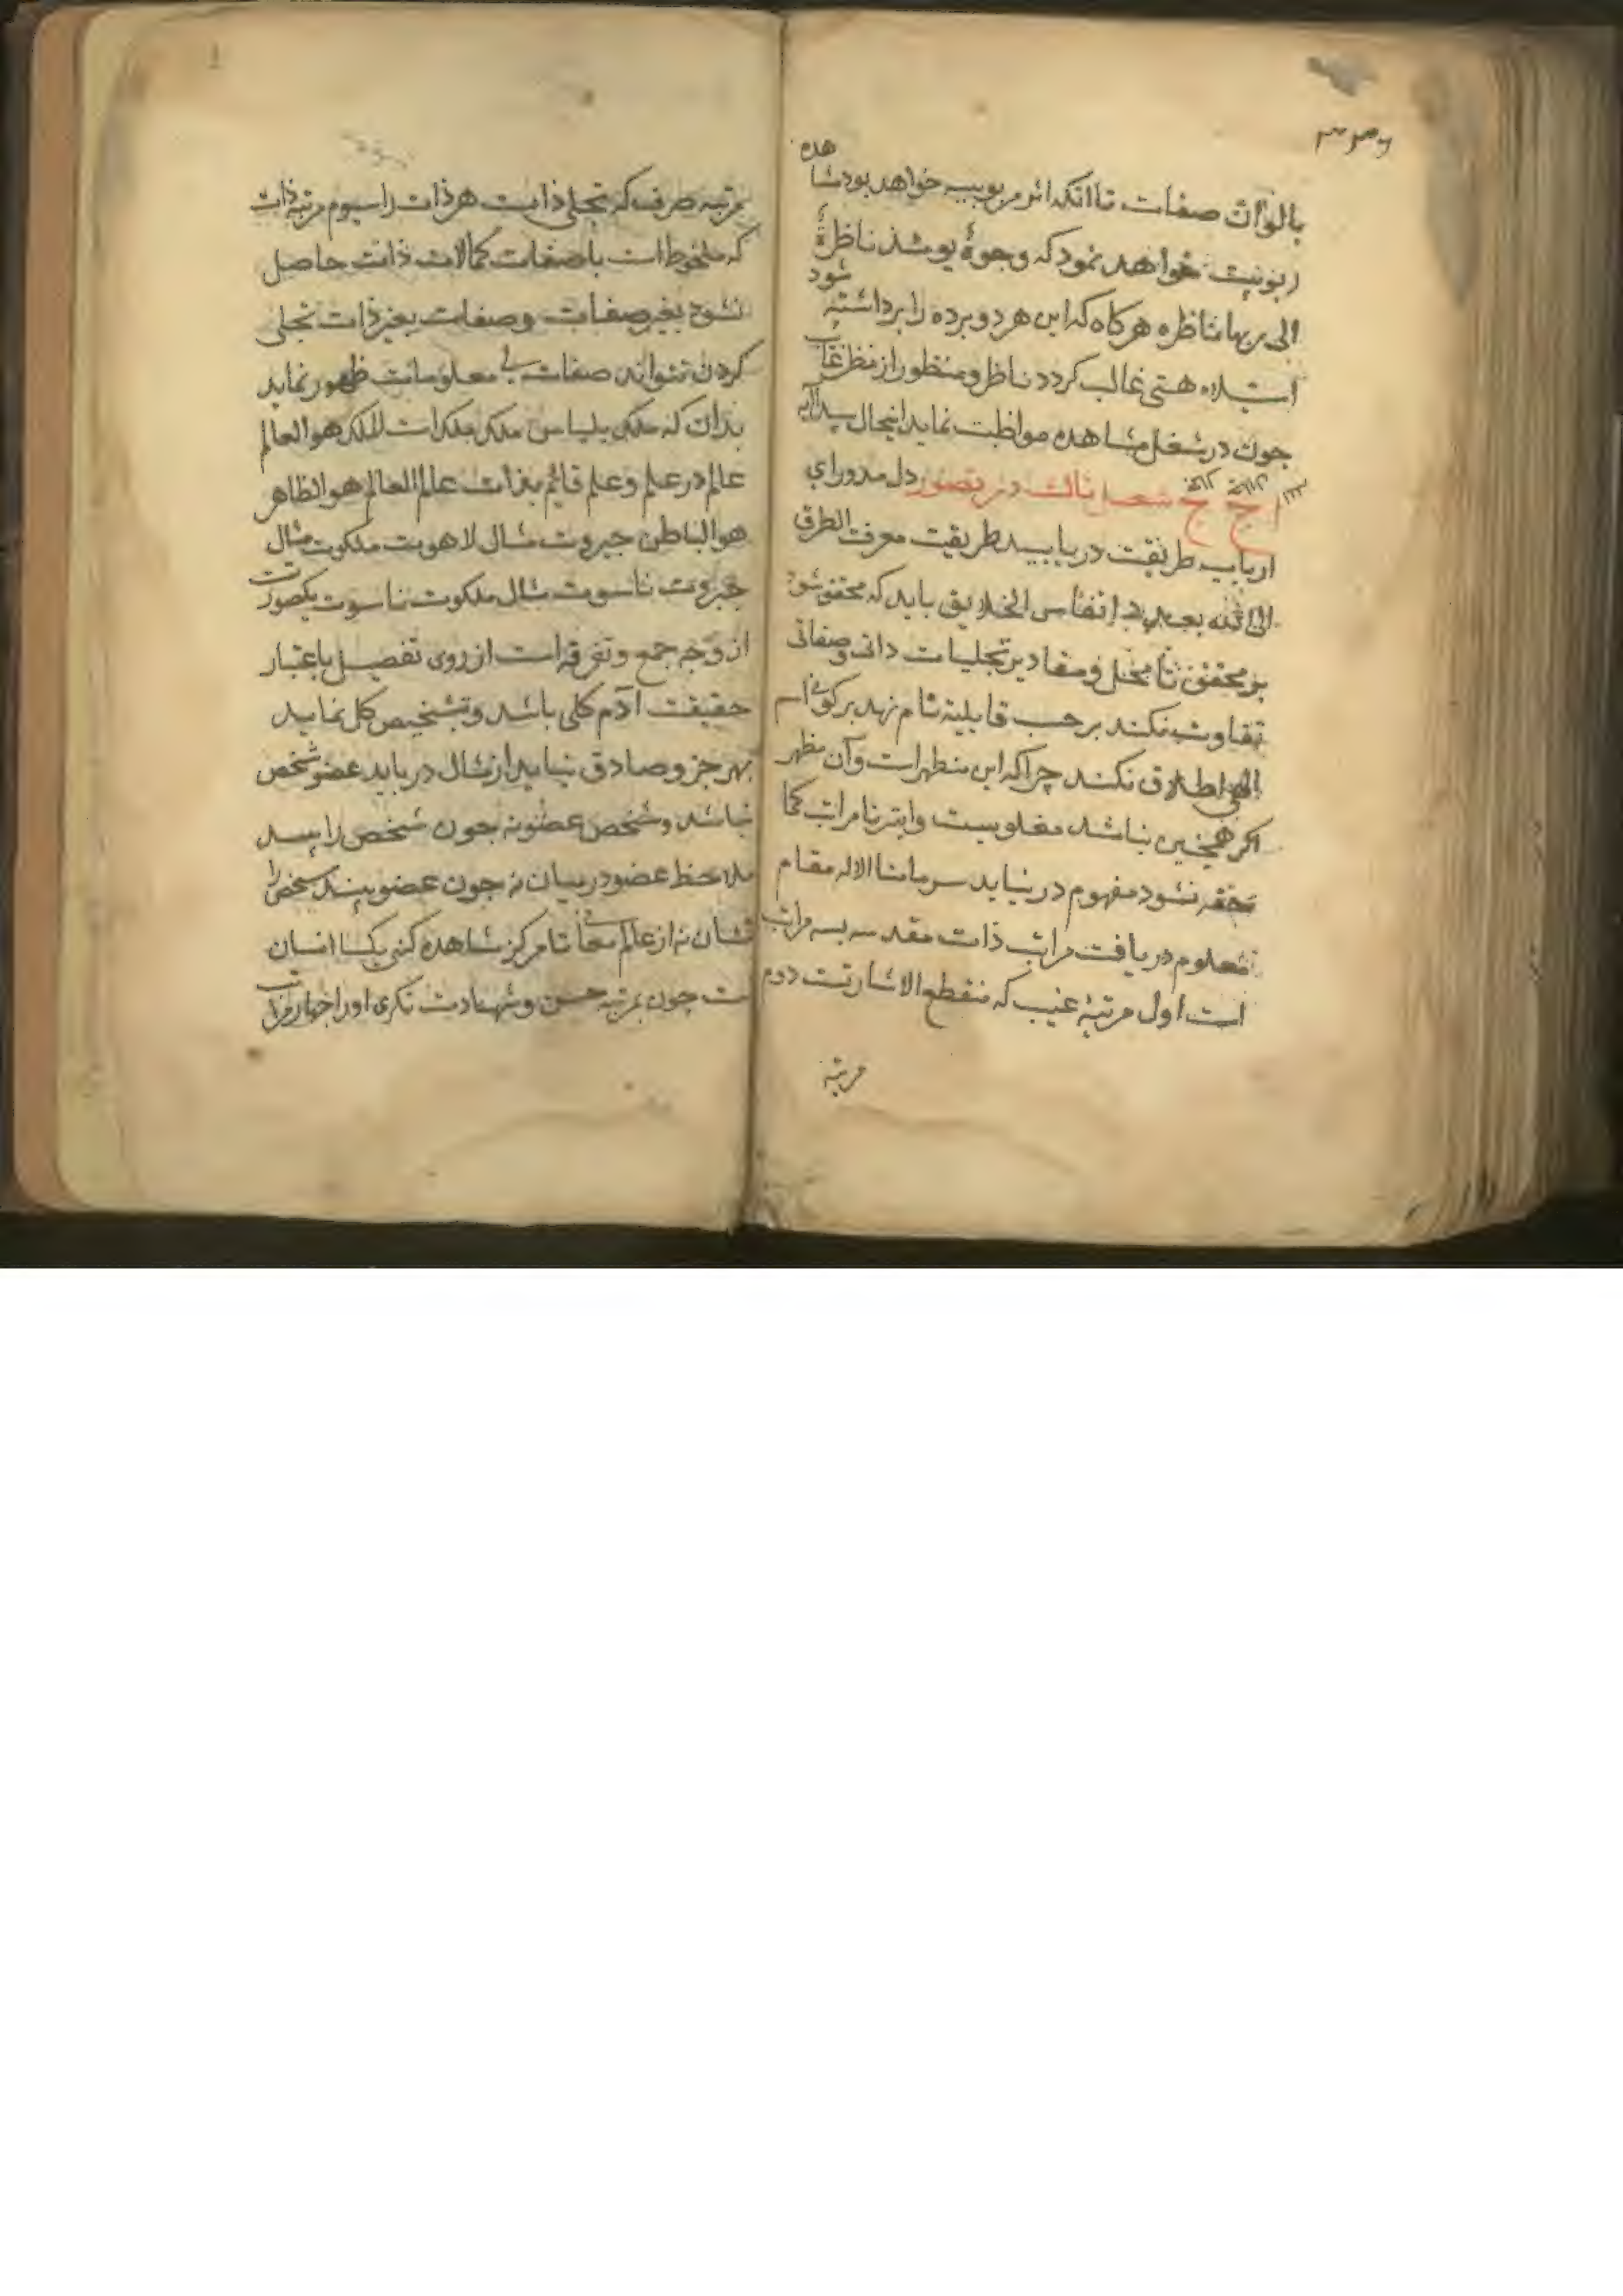 هده
بالوان صفات تا انکه اثر مربوبیه خواهد بود مشا
ربوبیت خواهد نمود که وجوهٌ یومئذ ناظرةٌ
شود
الی ربها ناظره هرکاه که این هر دو برده را برداشته
استیلاء هستی غالب کردد ناظر و منظور از نظر غایب
جون در شغل مشاهده مواظبت نماید اینحال پیدا آید
شغل ثالث در تصور دل مدور ای
ارباب طریقت دریابید طریقت معرفت الطرق
الی الله بعدد انفاس الخلایق باید که محقق شود
بر محقق تا محل و مقادیر تجلیات ذاتی و صفاتی
تفاوت نکند بر حسب قابلیة نام نهد بر کونی اسم
الهی اطلاق نکند چرا که این مظهر است و آن مظهر
اکر همچنین نباشد مغلوبست و این نا مراتب کما
حقه نشود مفهوم در نیاید سر مامنا الا له مقام
معلوم دریافت مراتب ذات مقدسه بسه مراتب
است اول مرتبهٔ غیب که منقطع الاشارتست دوم
مرتبه
مرتبه صرف که تجلی ذاتست هر ذات را سیوم مرتبه ذات
که ملحوظ است با صفات کمالات ذات حاصل
نشود بغیر صفات و صفات بغیر ذات تجلی
کردن نتواند صفات بی معلومات ظهور نماید
بدان که ملکی بلباس ملکی ملک است لملک هو العالم
عالم در علم و علم قائم بذات عالم العالم هو الظاهر
هو الباطن جبروت مثال لاهوت ملکوت مثال
جبروت ناسوت مثال ملکوت ناسوت یکصورتست
از وجه جمع و تفرقه است از روی تفصیل باعتبار
حقیقت آدم کلی باشد و تشخیص کل نماید
بهر جز و صادق نیاید از مثال دریابد عضو شخص
نباشد و شخص عضو نه جون شخص را بیند
ملاحظ عضو درمیان نه جون عضو بیند شخص را
نشان نه از عالم معانی تا مرکز مشاهده کنی یکسا انسان
ست چون بمرتبه حسن و شهادت نکری او را چهار مراتب